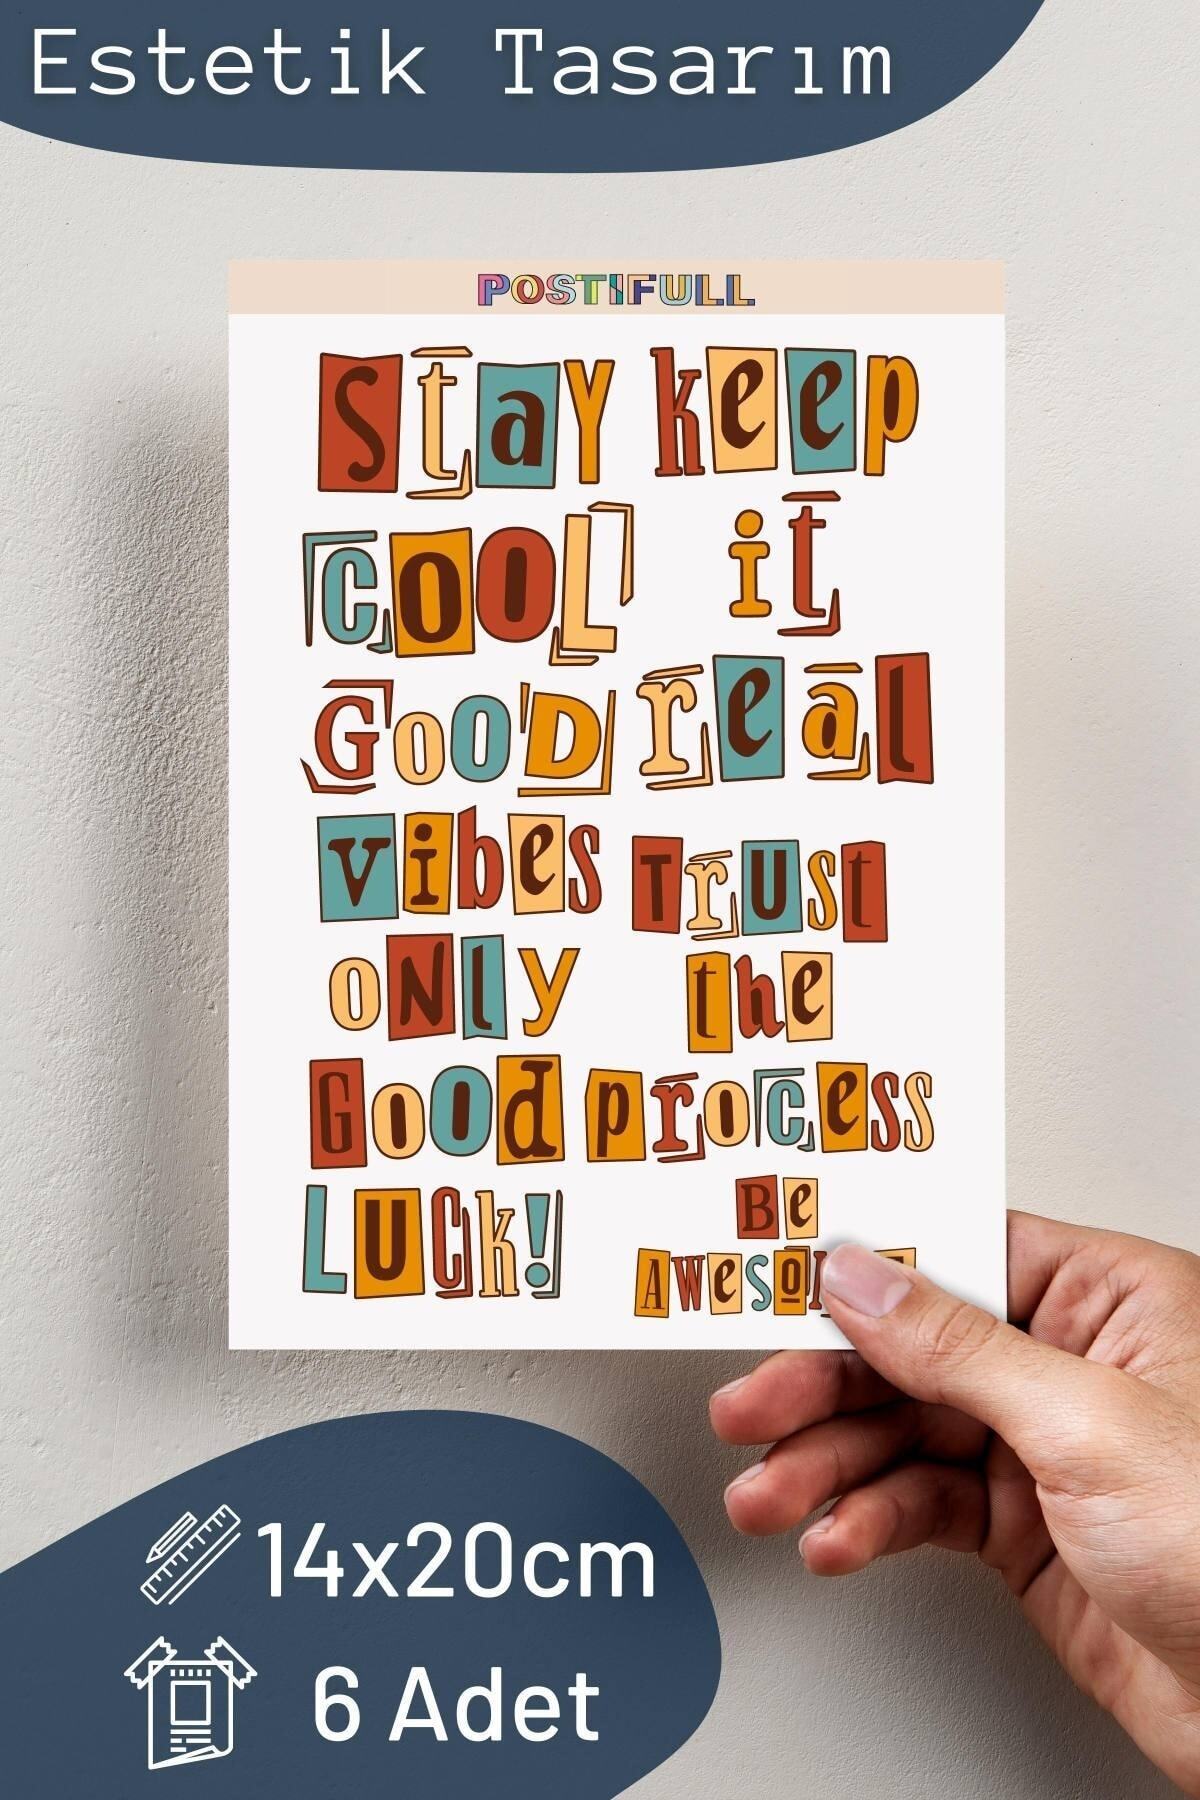 Estetik Tasarım
POSTIFULL
Stay
COOL
GOOD
vibes
oNly
GOOd
LUCK!
keep
it
real
Trust
the
process
Be
14x20cm
6 Adet